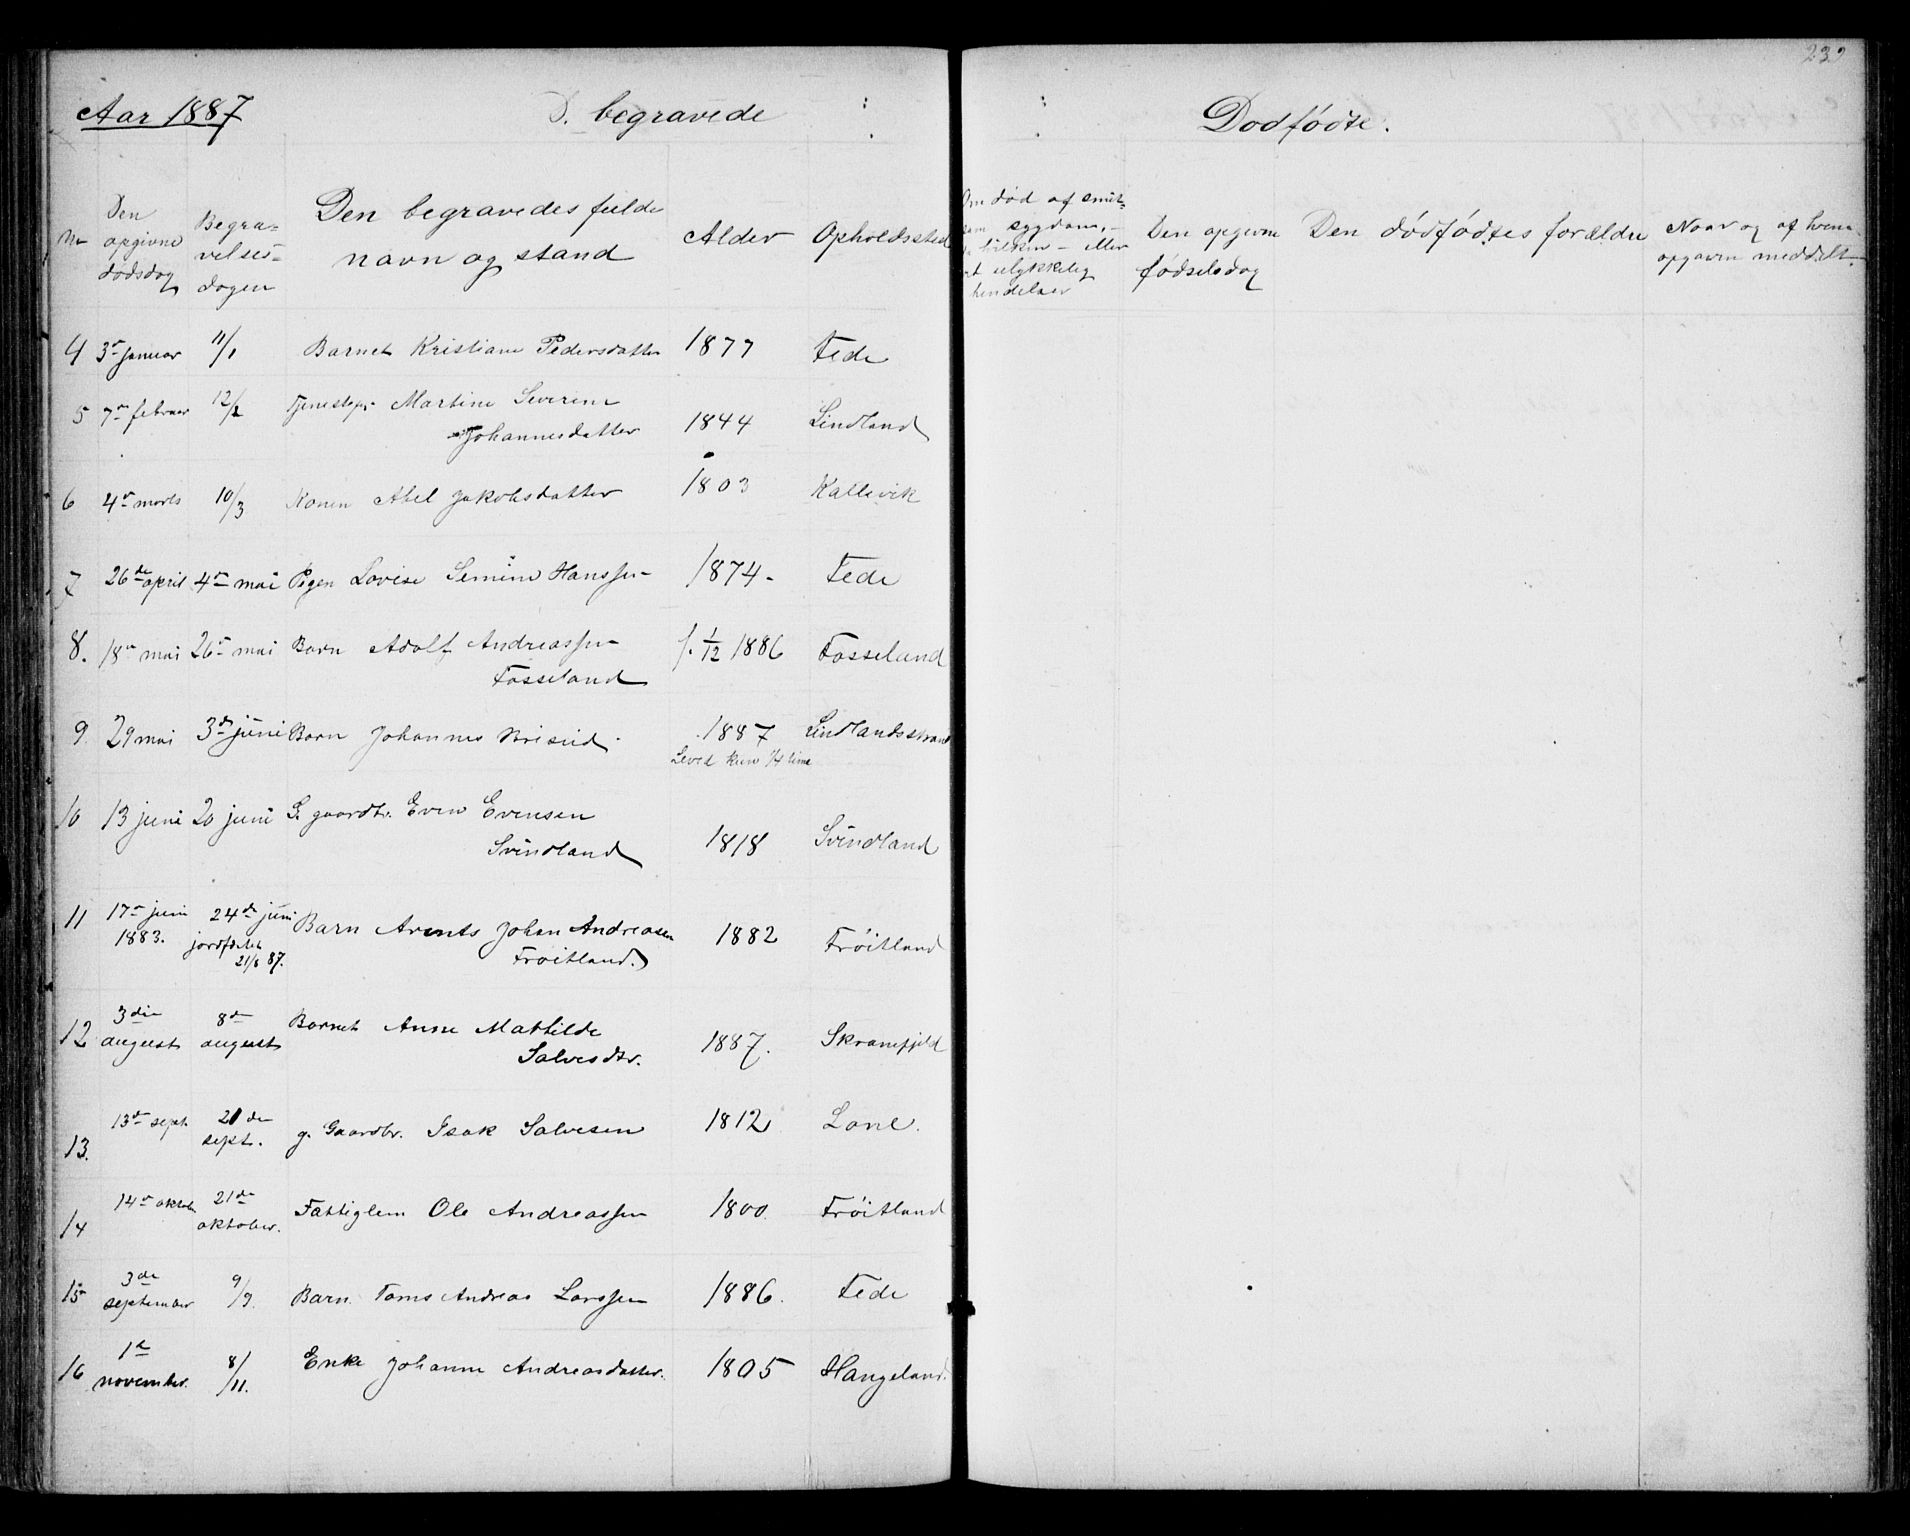 Aar 1887 D. begravede
Nr Den opgivne dødsdag Begravelsesdagen Den begravedes fulde navn og stand Alder Opholdssted
4 3die januar 11/1 Barnet Kristiane Pedersdatter 1877 Fede
5 7de februar 12/2 Tjenestepi. Martine Severine
Johannesdatter 1844 Lindland
6 4de marts 10/3 Konen Abel Jakobsdatter 1803 Kallevik
7 26de april 4de mai Pigen Lovise Semine Hanssen 1874. Fede
8. 18de mai 26de mai Barn Adolf Andreassen
Fosseland f. 1/12 1886 Fosseland
9. 29 mai 3de juni Barn Johannes 1887 Lindlandsstrand
Leved kun 1/4 time
10 13 juni 20 juni G. gaardbr. Even Evensen
Svindland 1818 Svindland
11 17de juni 1883. 24de juni Barn Arents Johan Andreasen 1882 Frøitland
jordfæstet 21/8 87. Frøitland.
12 3die august 8de august Barnet Anne Mathilde
Salvesdtr. 1887. Skranefjeld
13. 13de sept. 21de sept. g. Gaardbr. Isak Salvesen 1812 Lone.
14 14de oktober 21de oktober. Fattiglem Ole Andreassen 1800. Frøitland
15 3de september 9/9. Barn Toms Andreas Larssen 1886. Fede
16 1ste november. 8/11. Enke Johanne Andreasdatter. 1805 Hangeland.
239
Dødfødte.
Om død af smitsom sygdom, eller ulykkelig hendelser
Den opgivne fødselsdag
Den dødfødtes forældre
Naar og af hvem opgaven meddelt.